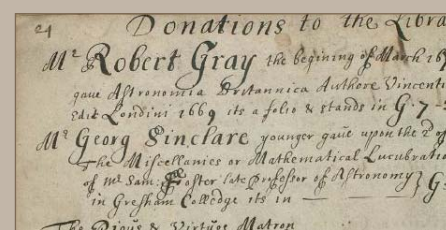 24
Donations to the Libra
Mr Robert Gray the begining of March 16
gave Astronomia Britannica Authore Vincenti
Edit Londini 1669 its a folio & stands in G: 7 -
Mr Georg Sinclare younger gave upon the 2 of
The Miscellanies or Mathematical Lucubratio
of Mr Sam: Foster late Professor of Astronomy } G:
in Gresham Colledge its in
The Pious & Virtuos Matron